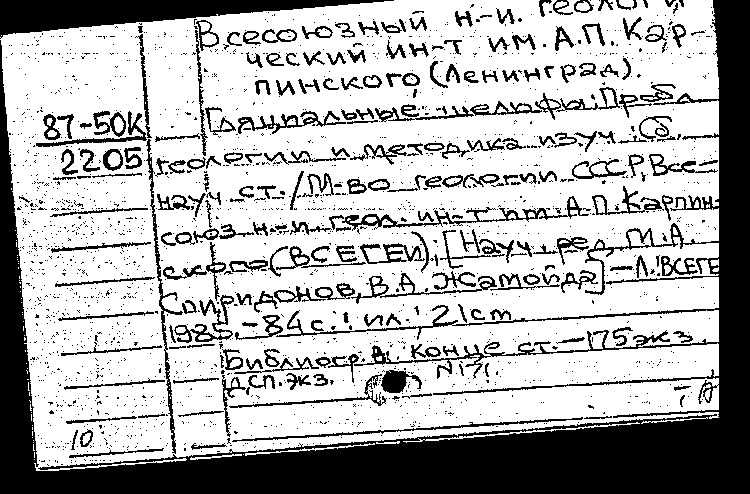 Всесоюзный н-и. геологи
ческий ин-т им. А.П. Кар-
пинского, (Ленинград).
87-50К
Гляциальные шельфы: Пробл.
2205
геологии и методика изуч.: Сб.
науч ст. / М-во геологии СССР, Все-
союз. н-и. геол. ин-т им. А.П. Карпин-
ского (ВСЕГЕИ); [Науч. ред. М.А.
Спиридонов, В.А. Жамойда] – Л.: ВСЕГЕ
1985. – 84 с.: ил.; 21 см.
Библиогр. в конце ст. – 175 экз.
ДСП. экз. N 171.
10